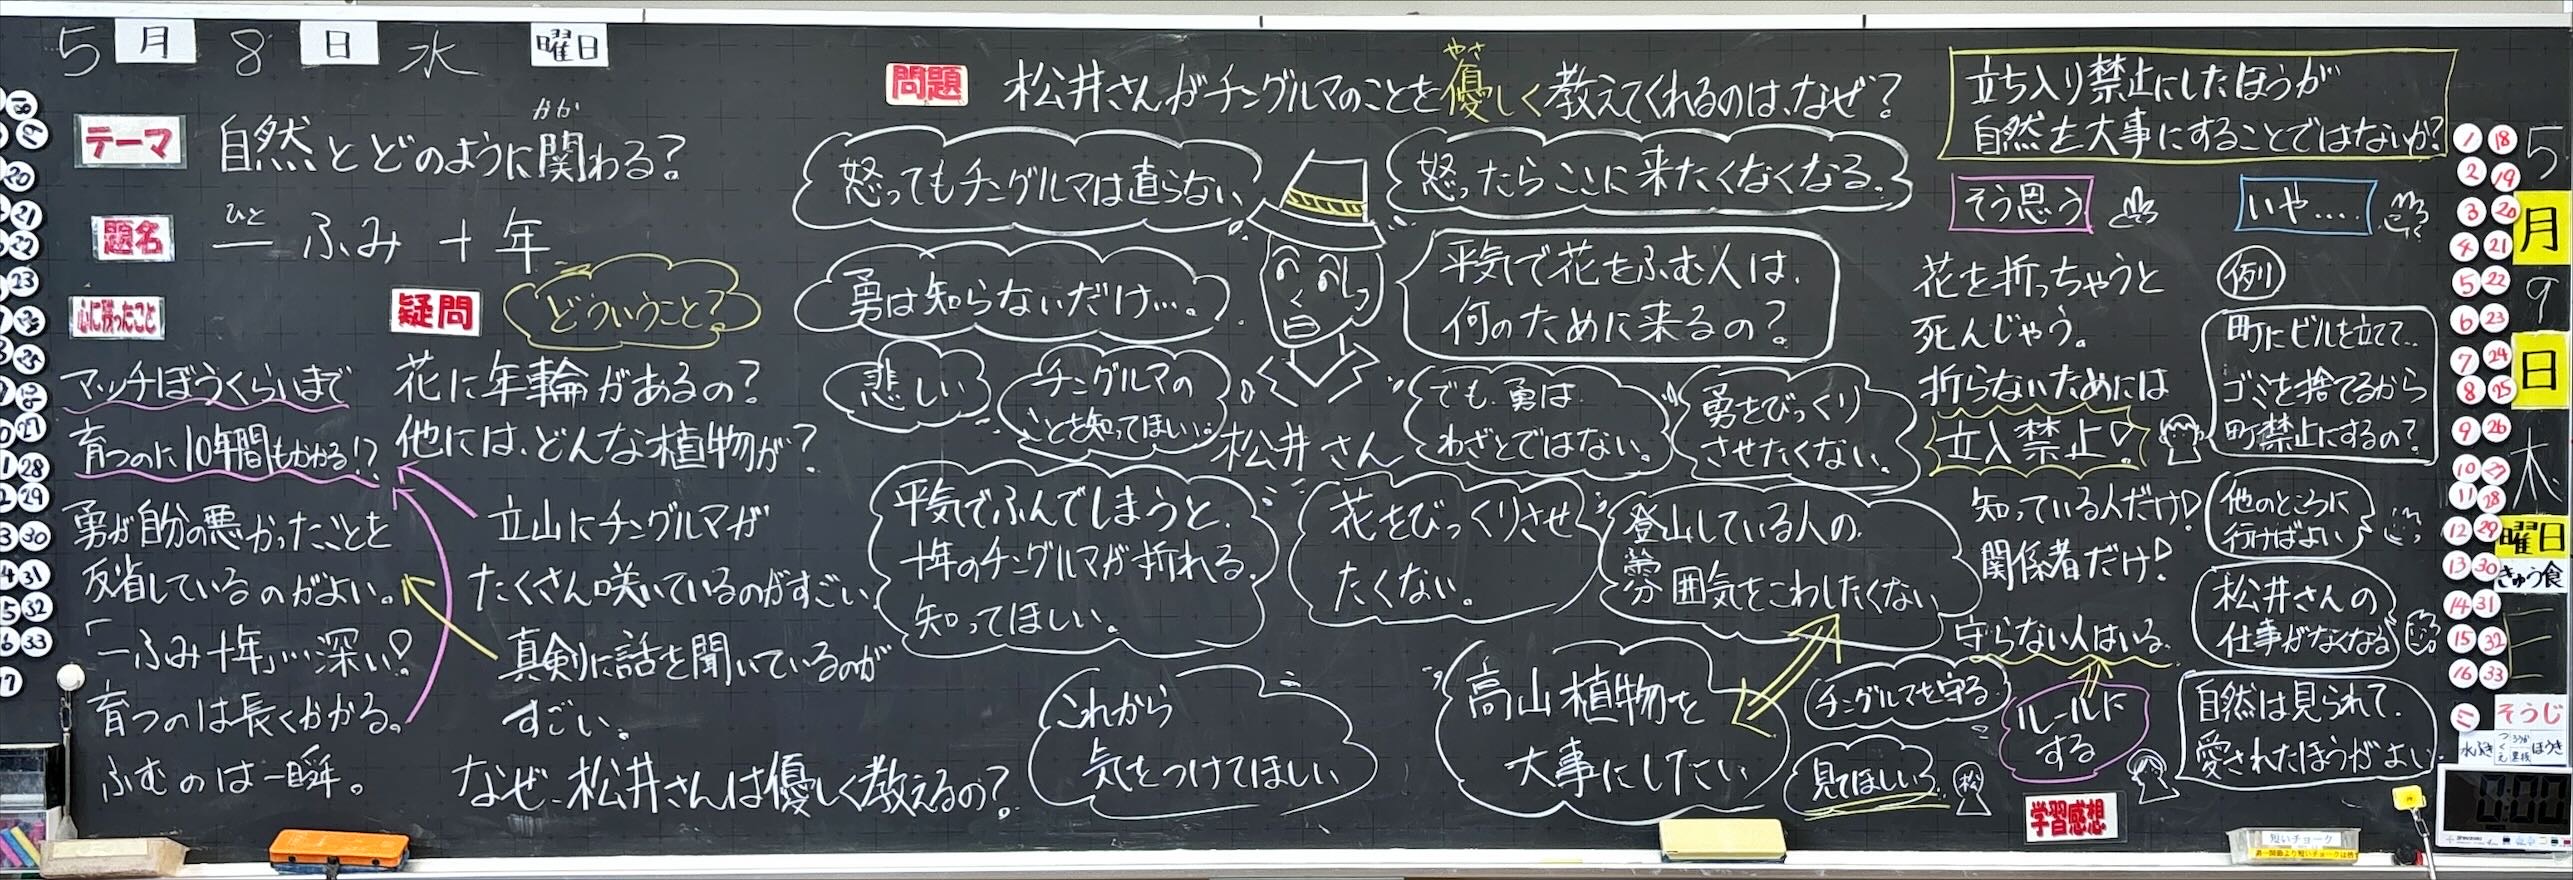 5月8日水曜日
テーマ
自然とどのように関わる?
かか
題名
一ふみ十年
ひと
心に残ったこと
マッチぼうくらいまで
育つのに10年間もかかる!?
勇が自分の悪かったことを
反省しているのがよい。
「一ふみ十年」…深い!
育つのは長くかかる。
ふむのは一瞬。
疑問
どういうこと?
花に年輪があるの?
他には、どんな植物が?
立山にチングルマが
たくさん咲いているのがすごい。
真剣に話を聞いているのが
すごい。
なぜ、松井さんは優しく教えるの?
問題
松井さんがチングルマのことを優しく教えてくれるのは、なぜ?
やさ
怒ってもチングルマは直らない
勇は知らないだけ…。
悲しい
チングルマの
ことを知ってほしい。
松井さん
平気でふんでしまうと、
十年のチングルマが折れる。
知ってほしい。
これから
気をつけてほしい
怒ったらここに来たくなくなる。
平気で花をふむ人は、
何のために来るの?
でも、勇は
わざとではない。
勇をびっくり
させたくない。
花をびっくりさせ
たくない。
登山している人の
雰囲気をこわしたくない
高山植物を
大事にしたい
チングルマを守る
見てほしい。
松
立ち入り禁止にしたほうが
自然を大事にすることではないか?
そう思う
花を折っちゃうと
死んじゃう。
折らないためには
立入禁止!
知っている人だけ!
関係者だけ!
守らない人はいる。
ルールに
する
学習感想
いや….
例
町にビルを立てて..
ゴミを捨てるから
町禁止にするの?
他のところに
行けばよい
松井さんの
仕事がなくなる
自然は見られて、
愛されたほうがよい
1 18
2 19
3 20
4 21
5 22
6 23
7 24
8 25
9 26
10 27
11 28
12 29
13 30
14 31
15 32
16 33
5月9日木曜日
きゅう食
そうじ
水ぶき
ほうき
短いチョーク